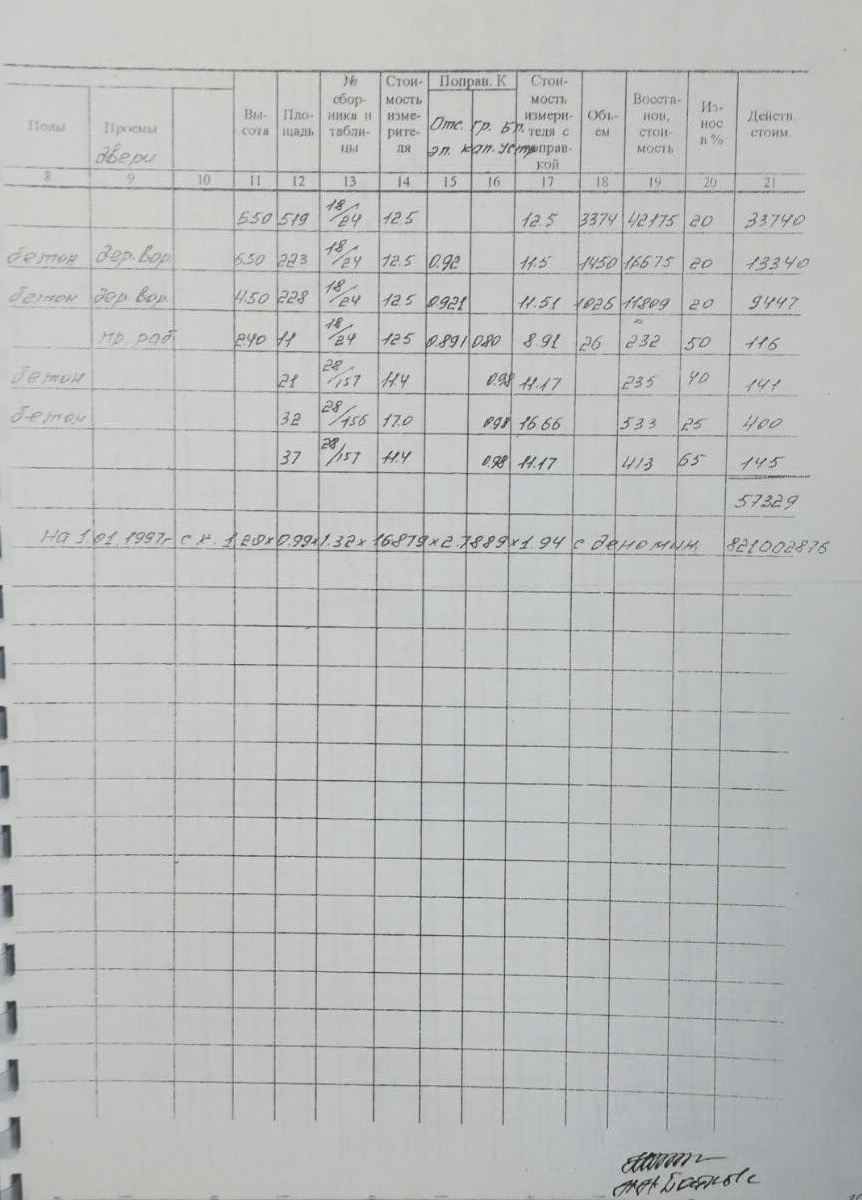 Полы Проемы двери Вы-сота Пло-щадь № сбор-ника и табли-цы Стои-мость изме-рите-ля Поправ. К Отс. эл. Гр. кап. Бл. Устр. Стои-мость измери-теля с поправ-кой Объ-ем Восста-нов, стои-мость Из-нос в % Действ. стоим.
8 9 10 11 12 13 14 15 16 17 18 19 20 21
6.50 519 18/24 12.5 12.5 3374 42175 20 33740
бетон дер.вор. 6.50 223 18/24 12.5 0.92 11.5 1450 16675 20 13340
бетон дер.вор. 4.50 228 18/24 12.5 0.921 11.51 1026 11809 20 9447
пр. раб 2.40 11 18/24 12.5 0.891 0.80 8.91 26 232 50 116
бетон 21 28/157 11.4 0.98 11.17 235 40 141
бетон 32 28/156 17.0 0.98 16.66 533 25 400
37 28/157 11.4 0.98 11.17 413 65 145
57329
На 1.01.1997г с к. 1.20×0.99×1.32×16879×2.7889×1.94 с деномин. 821002876